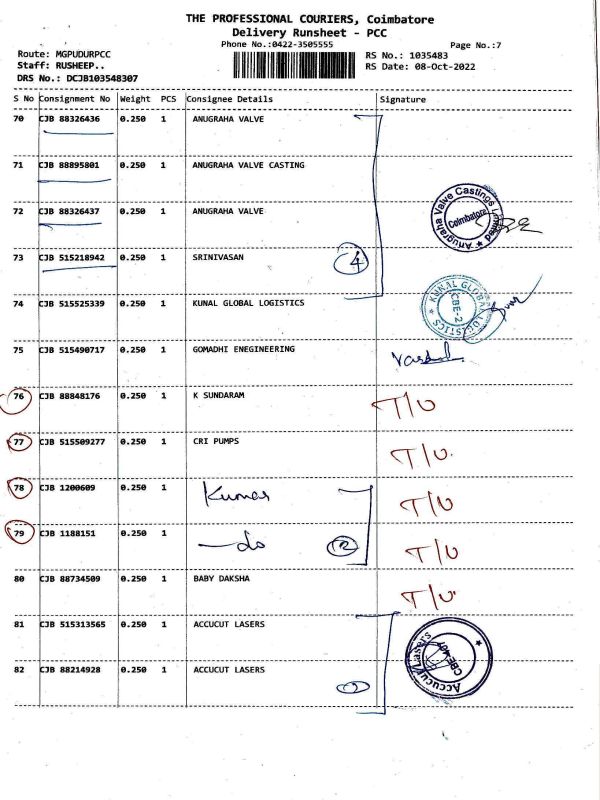 THE PROFESSIONAL COURIERS, Coimbatore
Delivery Runsheet - PCC
Phone No.:0422-3505555
Page No.:7
Route: MGPUDURPCC
Staff: RUSHEEP..
DRS No.: DCJB103548307
RS No.: 1035483
RS Date: 08-Oct-2022
S No Consignment No Weight PCS Consignee Details Signature
70 CJB 88326436 0.250 1 ANUGRAHA VALVE
71 CJB 88895801 0.250 1 ANUGRAHA VALVE CASTING
72 CJB 88326437 0.250 1 ANUGRAHA VALVE
Anugraha Valve Castings Limited
Coimbatore
73 CJB 515218942 0.250 1 SRINIVASAN 4
74 CJB 515525339 0.250 1 KUNAL GLOBAL LOGISTICS
KUNAL GLOBAL LOGISTICS
CBE-2
75 CJB 515490717 0.250 1 GOMADHI ENEGINEERING
76 CJB 88848176 0.250 1 K SUNDARAM T/U
77 CJB 515509277 0.250 1 CRI PUMPS T/U.
78 CJB 1200609 0.250 1 Kumar T/U
79 CJB 1188151 0.250 1 —do 2 T/U
80 CJB 88734509 0.250 1 BABY DAKSHA T/U
81 CJB 515313565 0.250 1 ACCUCUT LASERS
82 CJB 88214928 0.250 1 ACCUCUT LASERS
Accucut Lasers